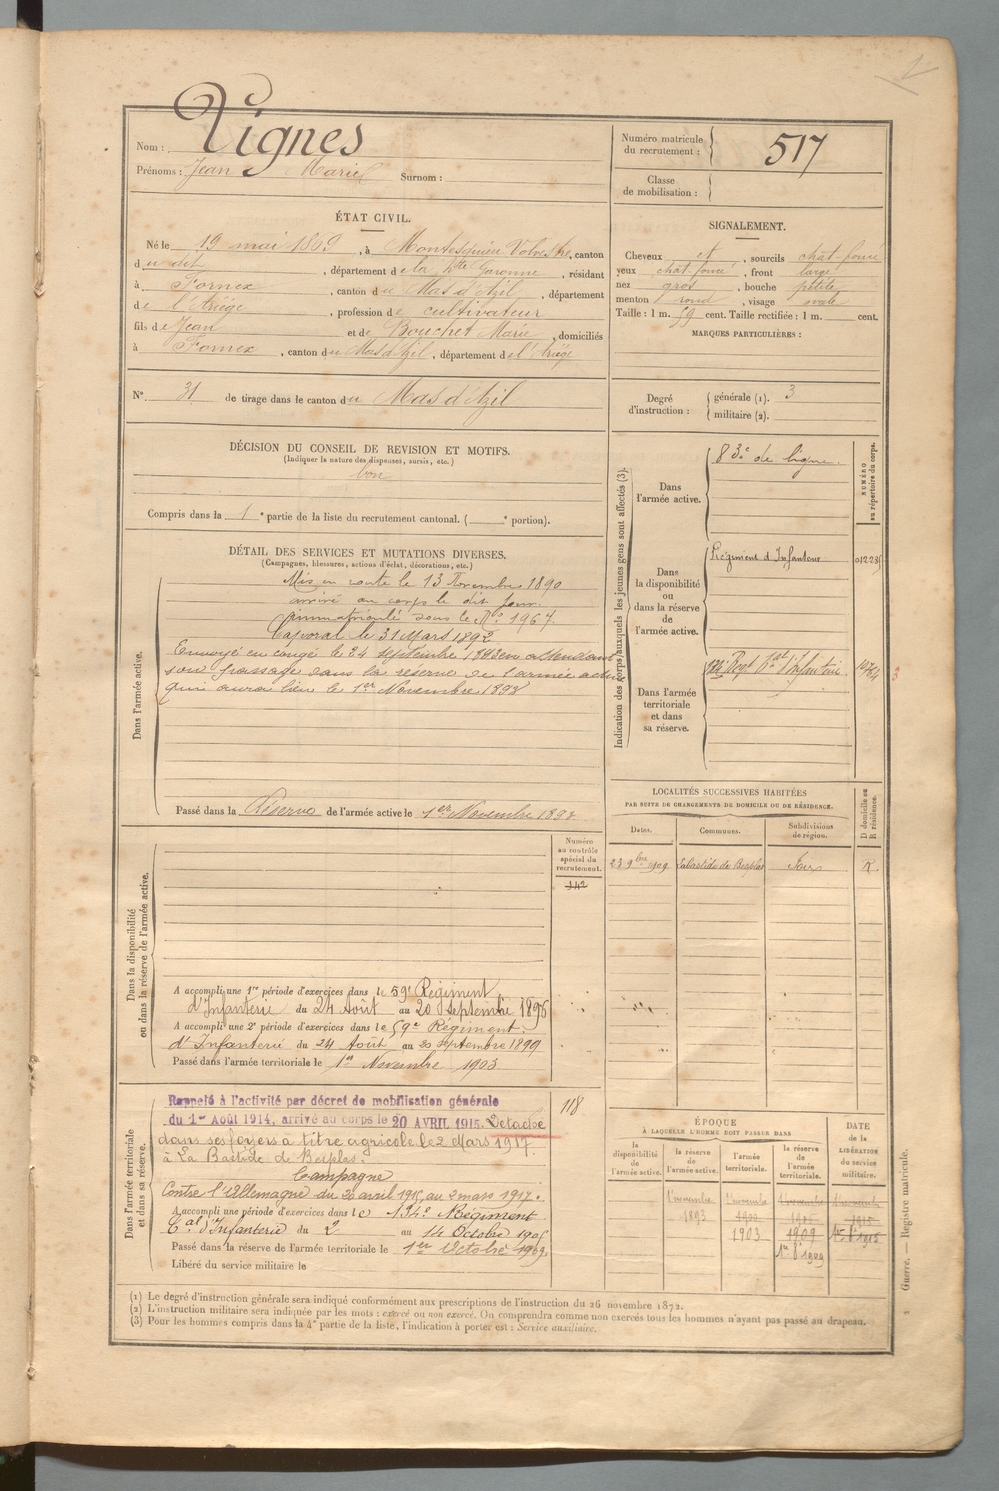 Nom : Vignes
Prénoms : Jean Marie Surnom :
Numéro matricule
du recrutement : 517
Classe
de mobilisation :
ÉTAT CIVIL.
Né le 19 mai 1869, à Montesquieu Volvestre, canton
du dit, département de la Hte Garonne, résidant
à Fornex, canton du Mas d'Azil, département
de l'Ariège, profession de cultivateur
fils de Jean et de Bouchet Marie, domiciliés
à Fornex, canton du Mas d'Azil, département de l'Ariège
SIGNALEMENT.
Cheveux et, sourcils chât-foncé
yeux chât-foncé, front large
nez gros, bouche petite
menton rond, visage ovale
Taille : 1 m. 59 cent. Taille rectifiée : 1 m. cent.
MARQUES PARTICULIÈRES :
N° 31 de tirage dans le canton du Mas d'Azil
Degré
d'instruction :
générale (1). 3
militaire (2).
DÉCISION DU CONSEIL DE REVISION ET MOTIFS.
(Indiquer la nature des dispenses, sursis, etc.)
bon
Compris dans la 1e partie de la liste du recrutement cantonal. ( e portion).
DÉTAIL DES SERVICES ET MUTATIONS DIVERSES.
(Campagnes, blessures, actions d'éclat, décorations, etc.)
Dans l'armée active.
Mis en route le 13 Novembre 1890
arrivé au corps le dit jour.
immatriculé sous le No 1967.
Caporal le 31 Mars 1892
Envoyé en congé le 24 septembre 1893 en attendant
son passage dans la réserve de l'armée active
qui aura lieu le 1er Novembre 1893
Passé dans la Réserve de l'armée active le 1er Novembre 1893
Indication des corps auxquels les jeunes gens sont affectés (3).
Dans
l'armée active.
83e de ligne.
NUMÉRO
au répertoire du corps.
Dans
la disponibilité
ou
dans la réserve
de
l'armée active.
Régiment d'Infanterie
Dans l'armée
territoriale
et dans
sa réserve.
Régt d'Infanterie.
3
LOCALITÉS SUCCESSIVES HABITÉES
PAR SUITE DE CHANGEMENTS DE DOMICILE OU DE RÉSIDENCE.
Dates. Communes. Subdivisions
de région.
D domicile ou
R résidence.
23 9bre 1909 Labastide de Besplas Foix R.
Dans la disponibilité
ou dans la réserve de l'armée active.
Numéro
au contrôle
spécial du
recrutement.
142
A accompli une 1re période d'exercices dans le 59e Régiment
d'Infanterie du 24 Août au 20 Septembre 1896
A accompli une 2e période d'exercices dans le 59e Régiment
d'Infanterie du 24 Août au 20 septembre 1899
Passé dans l'armée territoriale le 1er Novembre 1903
Dans l'armée territoriale
et dans sa réserve.
118
Rappelé à l'activité par décret de mobilisation générale
du 1er Août 1914, arrivé au corps le 20 AVRIL 1915. Détaché
dans ses foyers à titre agricole le 2 Mars 1917.
à La Bastide de Besplas.
Campagne
Contre l'Allemagne du 20 avril 1915 au 2 mars 1917.
A accompli une période d'exercices dans le 134e Régiment
Tal d'Infanterie du 2 au 14 Octobre 1905
Passé dans la réserve de l'armée territoriale le 1er Octobre 1909
Libéré du service militaire le
ÉPOQUE
À LAQUELLE L'HOMME DOIT PASSER DANS
la
disponibilité
de
l'armée active.
la réserve
de
l'armée active.
l'armée
territoriale.
la réserve
de
l'armée
territoriale.
DATE
de la
LIBÉRATION
du service
militaire.
1 novembre 1 novembre 1 novembre 1 novembre
1893 1915
1903 1909 1er 8bre 1915
1er 8bre 1909
(1) Le degré d'instruction générale sera indiqué conformément aux prescriptions de l'instruction du 26 novembre 1872.
(2) L'instruction militaire sera indiquée par les mots : exercé ou non exercé. On comprendra comme non exercés tous les hommes n'ayant pas passé au drapeau.
(3) Pour les hommes compris dans la 4e partie de la liste, l'indication à porter est : Service auxiliaire.
Guerre. — Registre matricule.